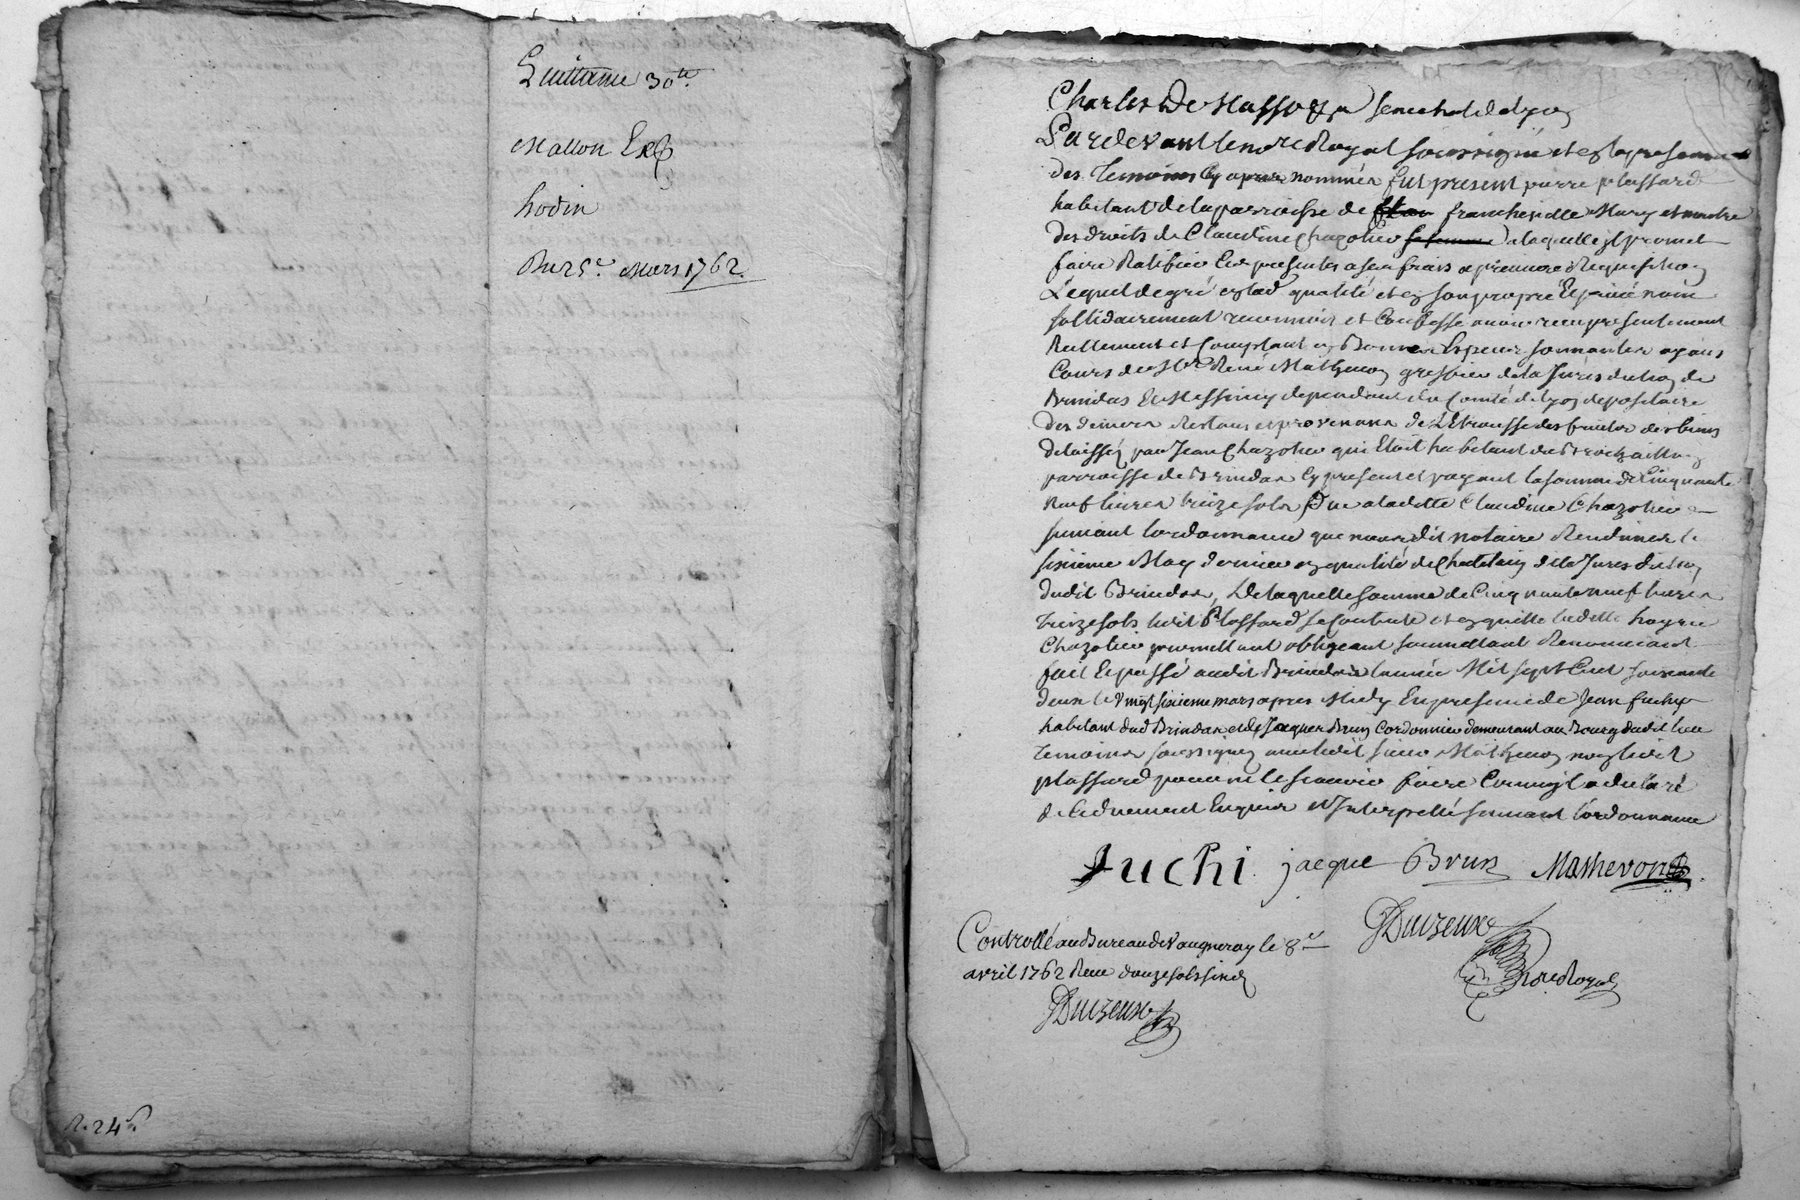 Quittance 30ᵗᵗ
Mallon Exp
hodin
Du 25ᵉ Mars 1762.
R. 24ˢ.
Charles De Masso senechal de Lyon
Pardevant le no.re Royal soussigné et en la presence
des Temoins cy apres nommés fut present pierre plassard
habitant de la parroisse de francheville Mary et maitre
des droits de Claudine Chazotier a laquelle il promet
faire Ratifier Les presentes a ses frais a premiere Requisition
Lequel de gré en lad qualité et en son propre Et privé nom
sollidairement reconnoir et Confesse avoir reçu presentement
Reellement et Comptant en Bonnes Especes sonnantes ayans
Cours de Sr René Mathevon greffier de la Jurisdiction de
Brindas Et Messimy dependant du Comté de Lyon depositaire
des deniers Restans et provenans de L'Etrousse des fruits des biens
delaissés par Jean Chazotier qui Etoit habitant du
parroisse de Brindas cy present et payant la somme de Cinquante
neuf livres treize sols Due a ladette Claudine Chazotier
suivant l'ordonnance que nous dit notaire Rendimes le
sixieme May dernier en qualité de Chatelain de la Jurisdiction
dudit Brindas, De laquelle somme de Cinquante neuf livres
treize sols ledit Plassard se contente et en quitte ledette hoyrie
Chazotier promettant obligeant soumettant Renonceant
fait Et passé audit Brindas l'année Mil sept Cent soixante
deux le vingt sixieme mars apres Midy En presence de Jean fuchy
habitant dud Brindas et de Jacques Brun Cordonnier demeurant au Bourg dudit lieu
Temoins soussignés avec ledit sieur Mathevon non ledit
plassard pour ne le scavoir faire Comme il a declaré
de ce duement Enquis et Interpellé suivant l'ordonnance
fuchi jacque Brun Mathevon
GDuizeux
no.re Royal
Controllé au Bureau de Vaugneray le 8ᵉ
avril 1762 Reçu douze sols six d
GDuizeux